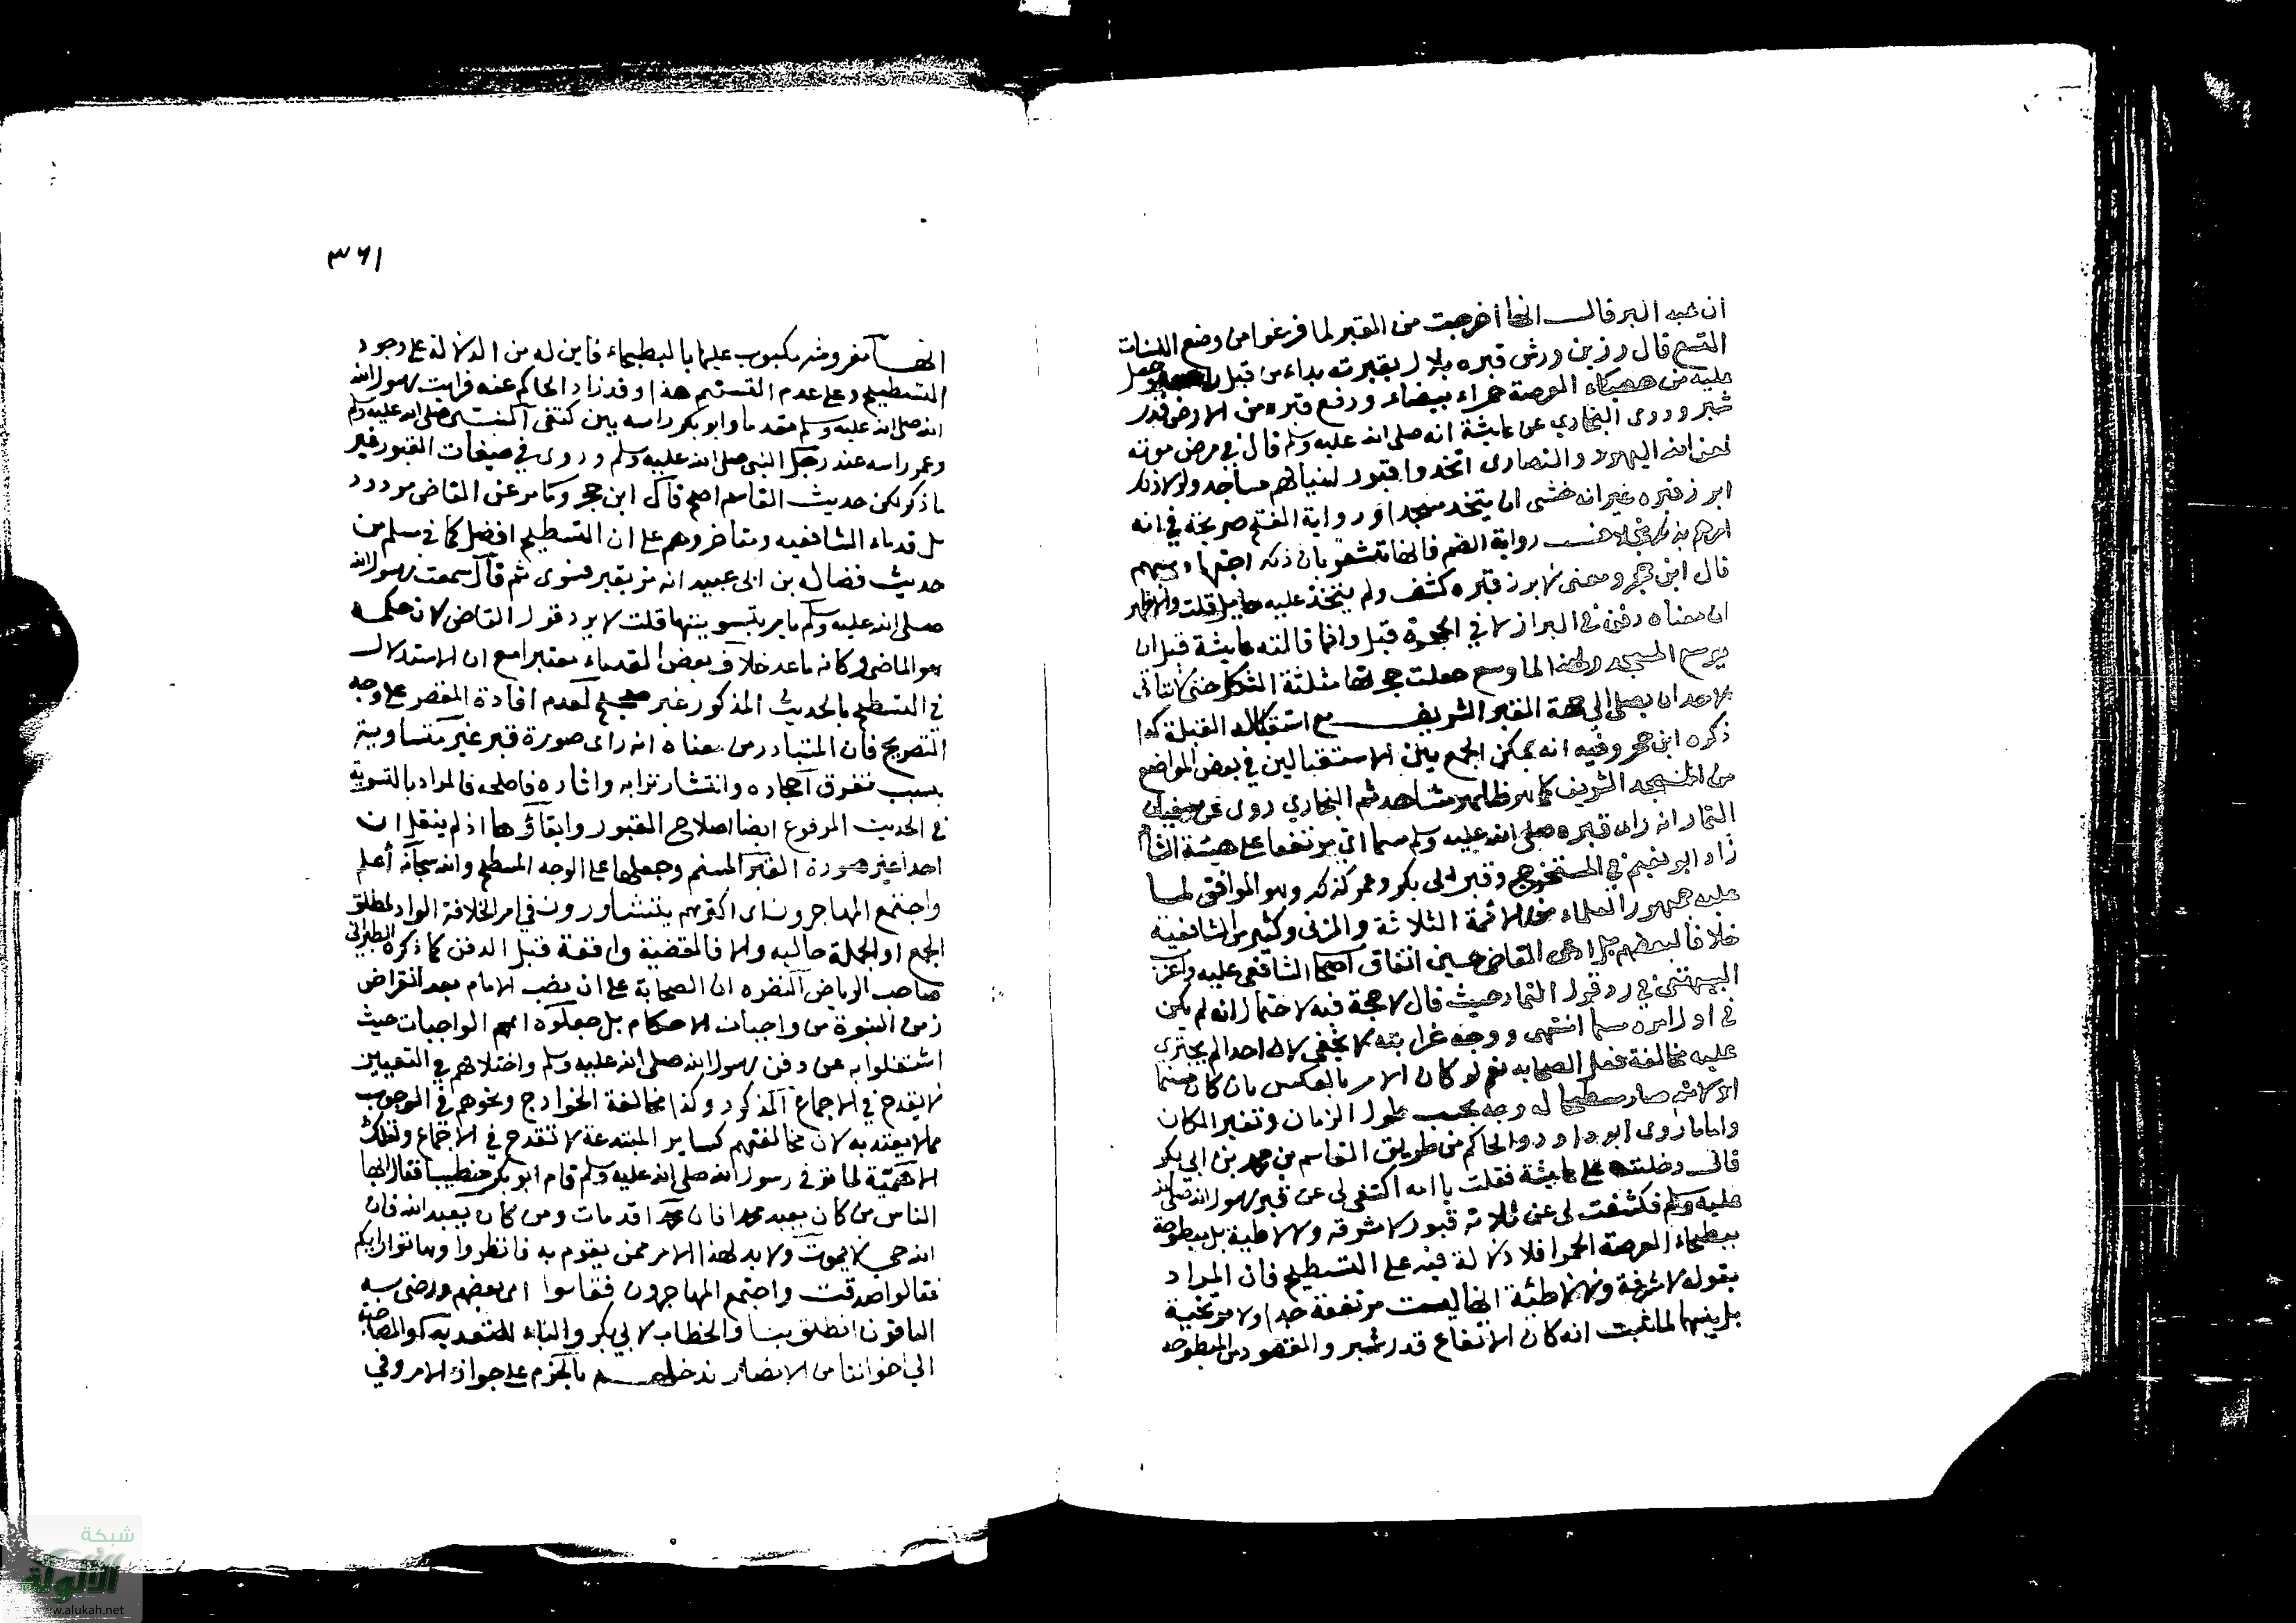 ان عبد البر قال انها أخرجت من القبر لما فرغوا من وضع اللبنات
التسع قال رزين ورش قبره بلال بقربته بداء من قبل راسه وجعل
عليه من حصباء العرصة حمراء بيضاء ورفع قبره من الارض قدر
شبر وروى البخاري عن عايشة انه صلى الله عليه وسلم قال في مرض موته
لعن الله اليهود والنصارى اتخذوا قبور انبيائهم مساجد ولولا ذلك
ابرز قبره غير انه خشي ان يتخذ مسجدا ورواية الفتح صريحة في انه
رواية الضم فانها تشعر بان ذلك اجتهاد منهم
قال ابن حجر ومعنى لابرز قبره كشف ولم يتخذ عليه حايل قلت والاظهر
ان معناه دفن في البراز لا في الحجرة قيل وانما قالته عايشة قبل ان
يوسع المسجد ولهذا لما وسع جعلت حجرتها مثلثة الشكل حتى لا يتاتى
لاحد ان يصلي الى جهة القبر الشريف مع استقبال القبلة كذا
ذكره ابن حجر وفيه انه يمكن الجمع بين الاستقبالين في بعض المواضع
من المسجد الشريف كما هو ظاهر مشاهد ثم البخاري روى عن سفيان
التمار انه راى قبره صلى الله عليه وسلم مسنما اي مرتفعا على هيئة السنام
زاد ابو نعيم في المستخرج وقبر ابى بكر وعمر كذلك وهو الموافق لما
عليه جمهور العلماء من الائمة الثلاثة والمزنى وكثير من الشافعية
خلافا لبعضهم بل ادعى القاضي حسين اتفاق اصحاب الشافعي عليه واغرب
البيهقي في رد قول التمار حيث قال لا حجة فيه لاحتمال انه لم يكن
في اول امره مسنما انتهى ووجه غرابته لا يخفى لان احدا لم يجترى
على مخالفة فعل الصحابه نعم لو كان الامر بالعكس بان كان مسنما
صار مسطحا له وجه بحسب طول الزمان وتغير المكان
واما ما روى ابو داود والحاكم من طريق القاسم بن محمد بن ابي بكر
قال دخلت على عايشة فقلت يا امه اكشفي لى عن قبر رسول الله صلى الله
عليه وسلم فكشفت لى عن ثلاثة قبور لا مشرفة ولا لاطية بل مبطوحة
ببطحاء العرصة الحمرا فلا دلالة فيه على التسطيح فان المراد
بقوله لا مشرفة ولا لاطئة انها ليست مرتفعة جدا ولا
بل بينهما لما ثبت انه كان الارتفاع قدر شبر والمقصود من المبطوحه
٣٦١
انها مفروشه مكبوب عليها بالبطحاء فاين له من الدلالة على وجود
التسطيح وعلى عدم التسنيم هذا وقد زاد الحاكم عنه فرايت رسول الله
صلى الله عليه وسلم مقدما وابو بكر راسه بين كتفى النبي صلى الله عليه وسلم
وعمر راسه عند رجل النبى صلى الله عليه وسلم وروى في صفات القبور غير
ما ذكر لكن حديث القاسم اصح قال ابن حجر وما مر عن القاضى مردود
بل قدماء الشافعيه ومتاخروهم على ان التسطيح افضل كما في مسلم من
حديث فضاله بن ابى عبيد انه مر بقبر فسوى ثم قال سمعت رسول الله
صلى الله عليه وسلم يامر بتسويتها قلت لا يرد قول القاضى لان حكمه
هو الماضى وكانه ما عد خلاف بعض القدماء معتبرا مع ان الاستدلال
في التسطيح بالحديث المذكور غير صحيح لعدم افادة المقصر على وجه
التصريح فان المتبادر من معناه انه راى صورة قبر غير متساوية
بسبب تفرق احجاره وانتشار ترابه واثاره فاصلحه فالمراد بالتسوية
في الحديث المرفوع ايضا اصلاح القبور وابقاؤها اذ لم ينقل ان
احدا غير صورة القبر المسنم وجعلها على الوجه المسطح والله سبحانه أعلم
واجتمع المهاجرون اى اكثرهم يتشاورون في امر الخلافة الواو لمطلق
الجمع او الجملة حاليه والا فالقضية واقعة قبل الدفن كما ذكره الطبراني
صاحب الرياض النضره ان الصحابة على ان نصب الامام بعد انقراض
زمن النبوة من واجبات الاحكام بل جعلوه اهم الواجبات حيث
اشتغلوا به عن دفن رسول الله صلى الله عليه وسلم واختلافهم في التعيين
لا يقدح في الاجماع المذكور وكذا مخالفة الخوارج ونحوهم في الوجوب
مما لا يعتد به لان مخالفتهم كساير المبتدعة لا تقدح في الاجماع ولتلك
الاهمية لما توفى رسول الله صلى الله عليه وسلم قام ابو بكر خطيبا فقال ايها
الناس من كان يعبد محمدا فان محمدا قد مات ومن كان يعبد الله فان
الله حي لا يموت ولا بد لهذا الامر ممن يقوم به فانظروا وهاتوا رايكم
فقالوا صدقت واجتمع المهاجرون فقالوا اى بعضهم ورضى به
الباقون انطلق بنا والخطاب لابي بكر والباء للتعديه او المصاحبة
الي اخواننا من الانصار ندخلهم بالجزم على جواز الامر وفي
شبكة
الألوكة
www.alukah.net